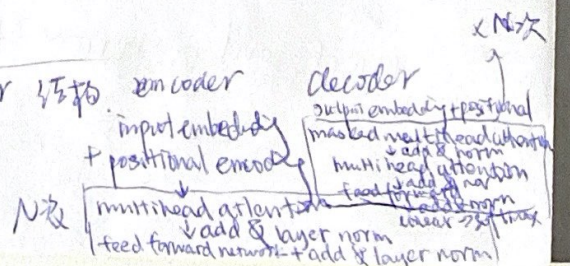 × N次
r 结构. encoder
input embedding
+ positional encoding
N次
multihead attention
↓ add & layer norm
feed forward network + add & layer norm
decoder
output embedding + positional
masked multihead attention
↓ add & norm
multihead attention
↓ add & nor
feed forward
add & norm
linear → softmax